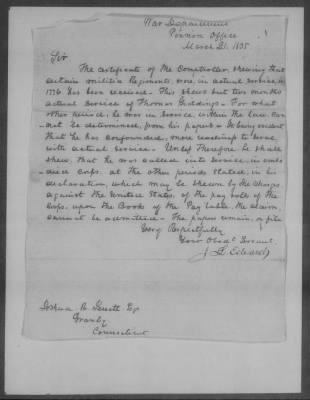 War Department
Pension Office
March 21. 1835
Sir
The certificate of the Comptroller, shewing that
certain militia Regiments, were, in actual service in
1776 has been received. This shews but two months
actual service of Thomas Giddings. For what
other period, he was in service within the law, can
not be determined, from his papers. It being evident
that he has confounded, mere readiness to serve,
with actual service. Unless therefore he shall
shew, that he was called into service, in embo
died corps, at the other periods stated in his
declaration, which may be shewn by the charges
against the United States of the pay roll of the
Corps, upon the Books of the Pay Table, the claim
cannot be admitted. The papers remain, on file
Very Respectfully
Your Obedt. Servant.
J. L. Edwards
Joshua R. Esq
Granby
Connecticut